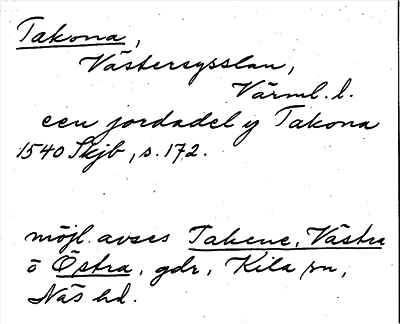 Takona,
Västersysslan,
Värml. l.
een jordadel y Takona
1540 Skjb, s. 172.
möjl. avses Takene, Västra
o Östra, gdr, Kila sn,
Näs hd.